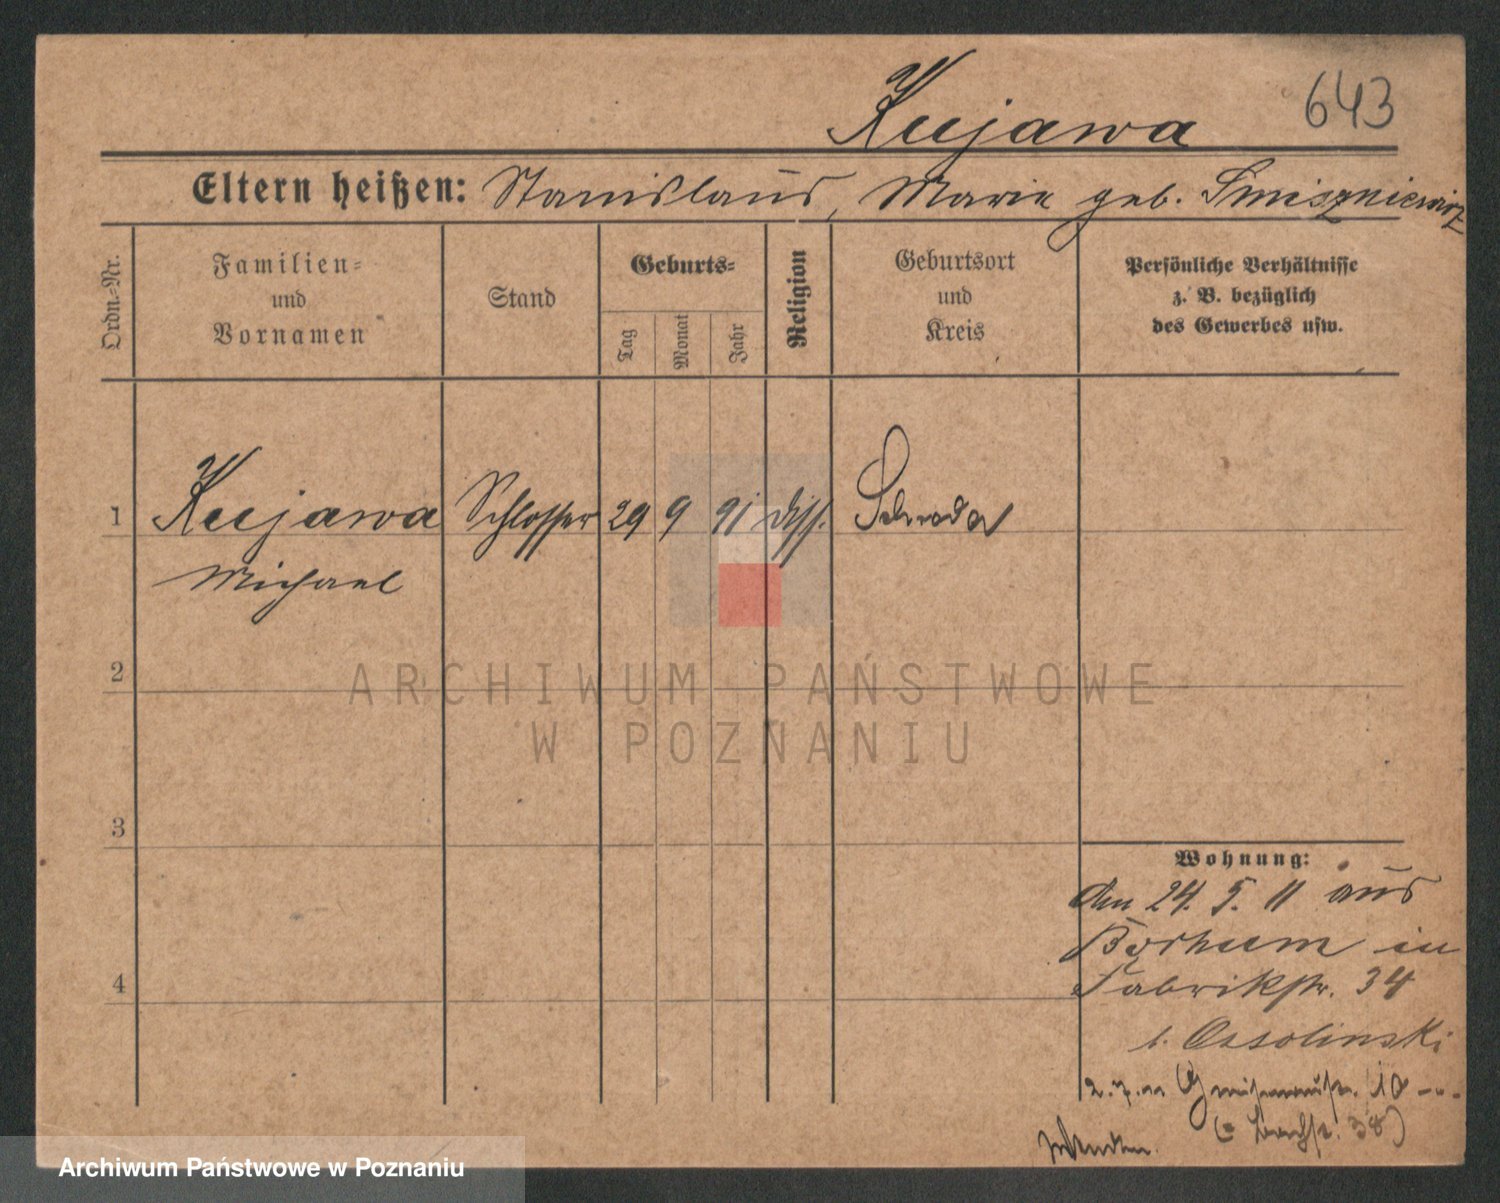 643
Kujawa
Eltern heißen: Stanislaus, Marie geb. Smiszniewicz
Ordn.-Nr.
Familien- und Vornamen
Stand
Geburts-
Tag
Monat
Jahr
Religion
Geburtsort und Kreis
Persönliche Verhältnisse
z. B. bezüglich
des Gewerbes usw.
1 Kujawa Schlosser 29 9 91 diss. Schroda
Michael
2
ARCHIWUM PAŃSTWOWE
W POZNANIU
3
Wohnung:
den 24. 5. 11 aus
Borhum in
4
Fabrikstr. 34
b. Ossolinski
2. 7. 11 Gneisenaustr. 10
38)
Wenden.
Archiwum Państwowe w Poznaniu